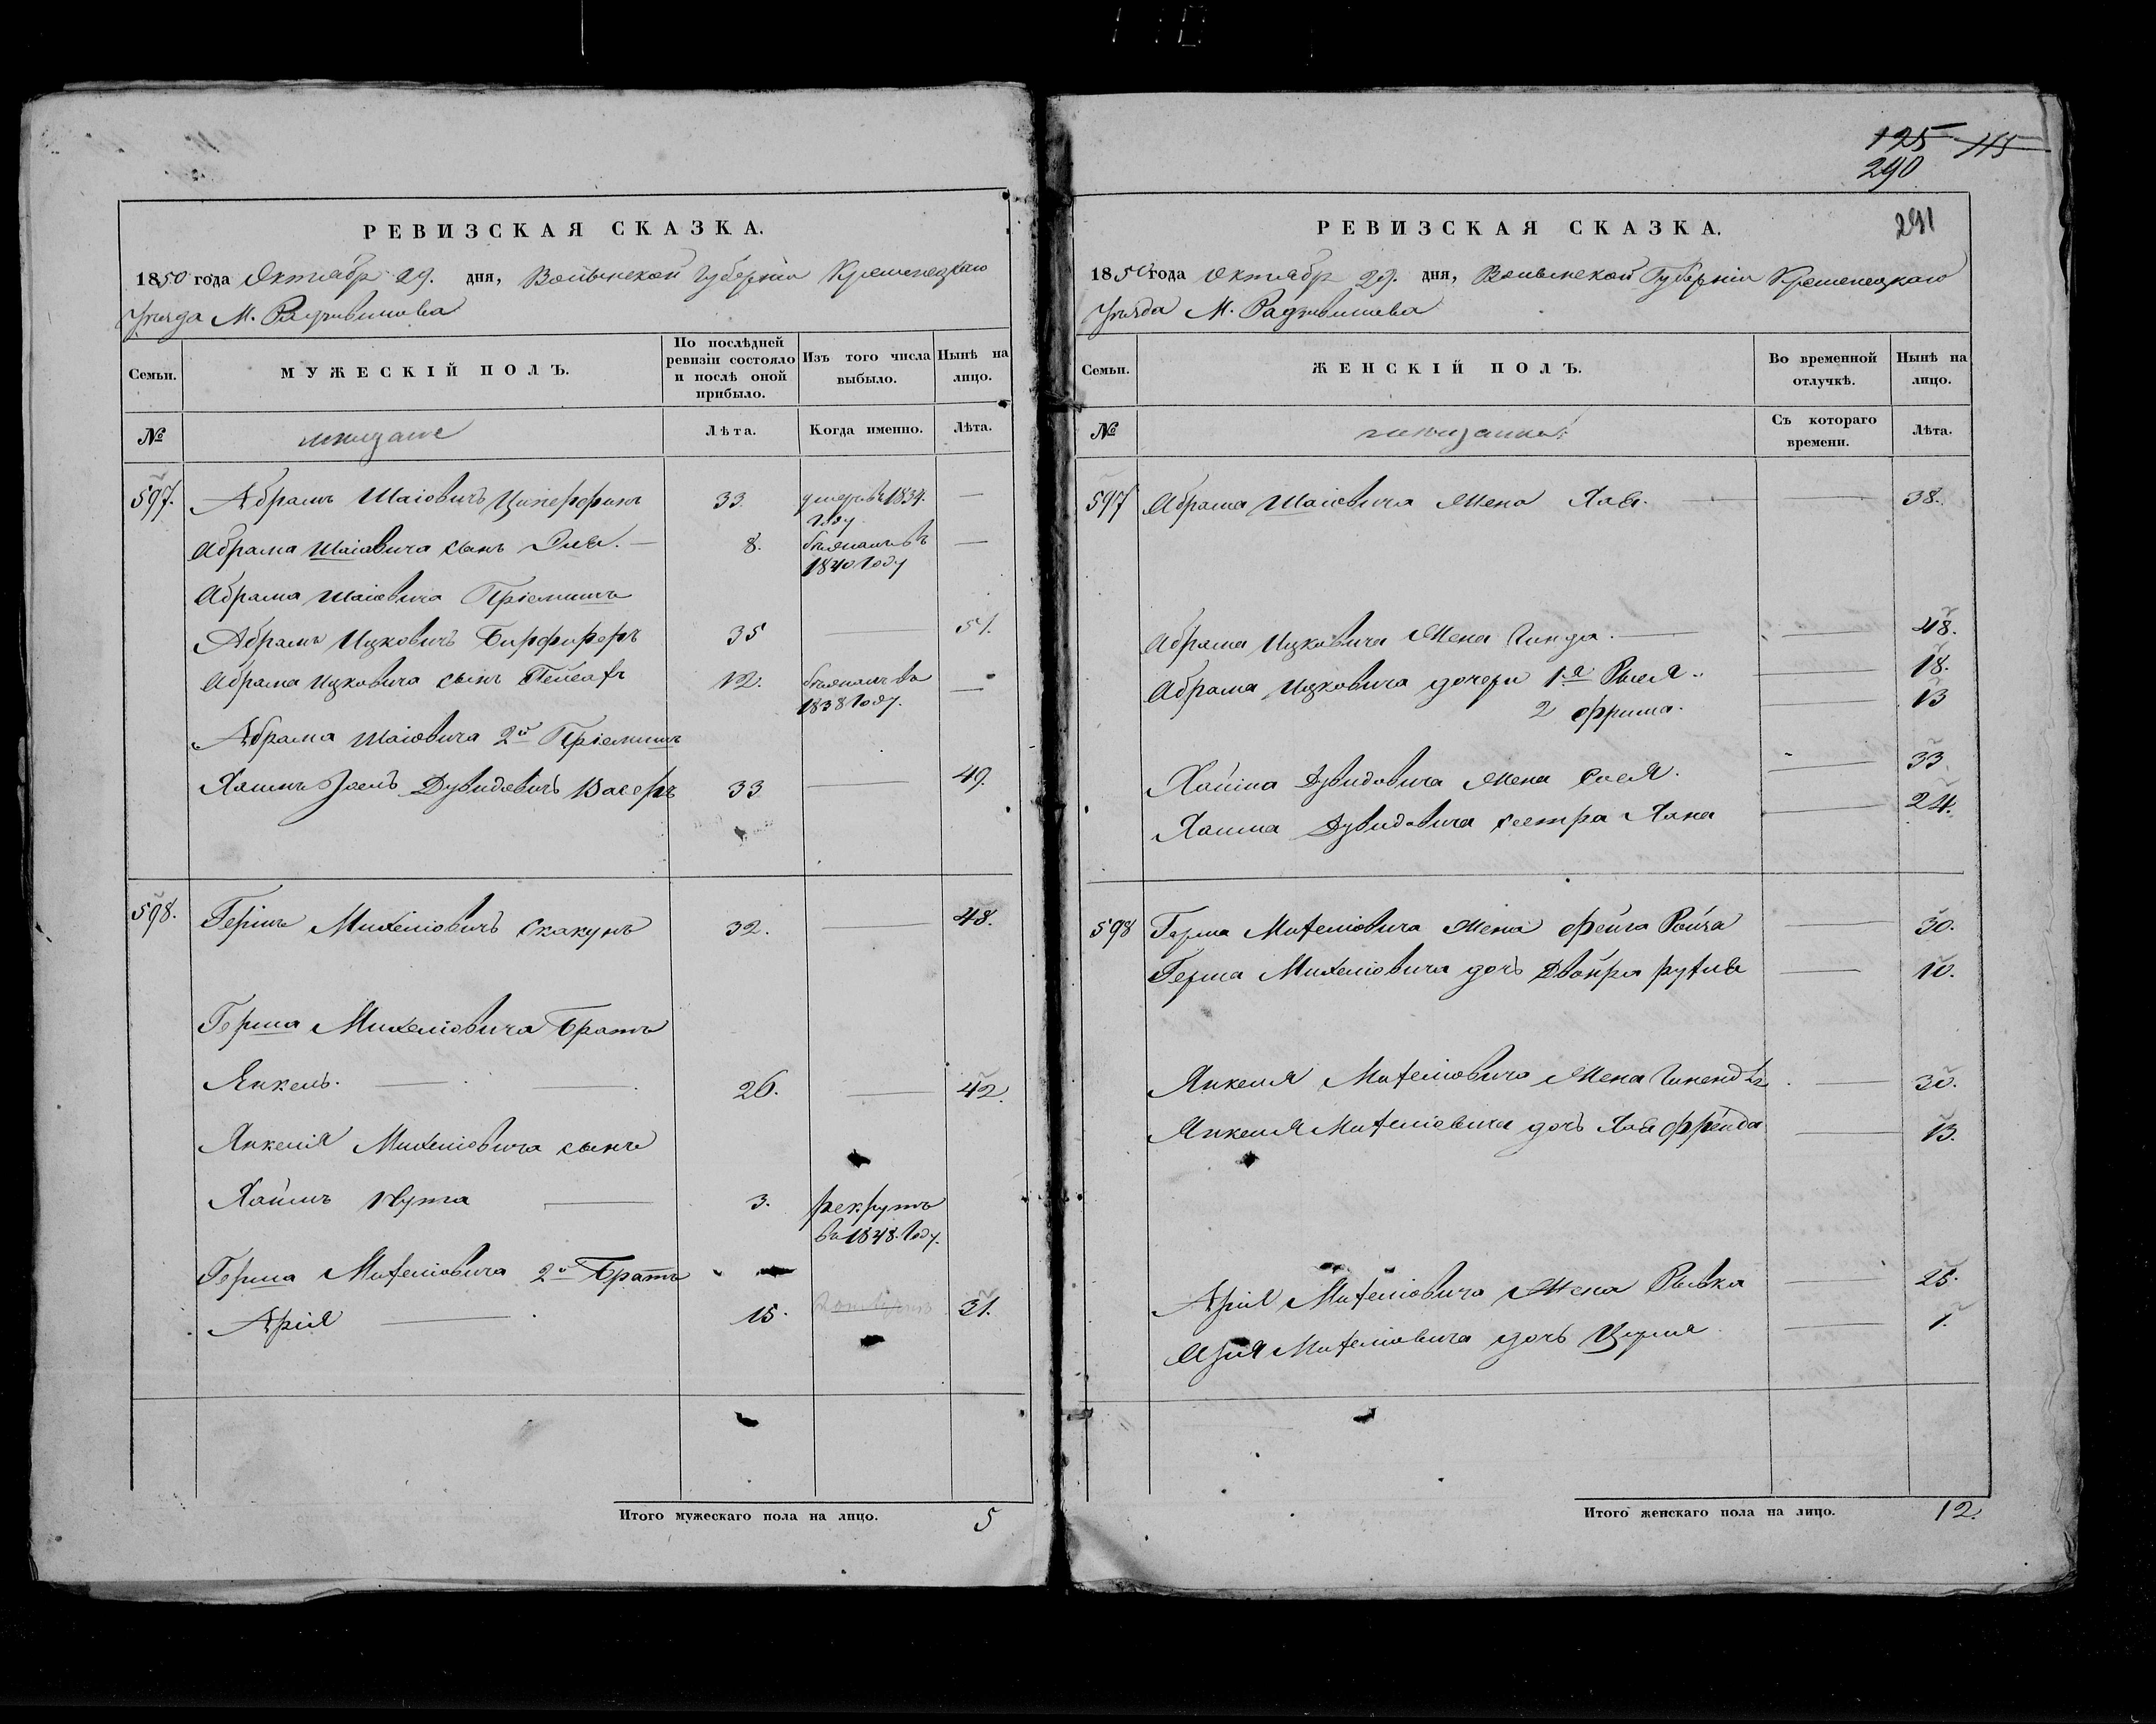 РЕВИЗСКАЯ СКАЗКА.
1850 года Октабр 29. дня, Волынской Губерніи Кременецкаго
Уезда М. Радзивилова
Семьи.
МУЖЕСКІЙ ПОЛЪ.
По послѣдней ревизіи состояло и послѣ оной прибыло.
Изъ того числа выбыло.
Нынѣ на лицо.
№
мещане
Лѣта.
Когда именно.
Лѣта.
597. Абрамъ Шаіовичъ 33. умеръ въ 1834. —
году
Абрама Шаіовича сынъ 8. бѣжалъ въ —
1840 году
Абрама Шаіовича Пріемышъ
Абрамъ Ицковичъ 35 — 51.
Абрама Ицковича сынъ Пейсахъ 12. бѣжалъ въ —
1838 году.
Абрама Шаіовича 2й Пріемышъ
Хаимъ Іосъ Дувидовичъ Васеръ 33 — 49.
598. Гершъ Михелiовичъ Скакунъ 32. — 48.
Герша Михелiовича Братъ
Янкель. — 26. — 42.
Янкеля Михелiовича сынъ
Хаимъ Нута — 3. рекрутъ
въ 1848. году.
Герша Михелiовича 2й Братъ
Аріѧ — 15. 31.
Итого мужескаго пола на лицо. 5
125 115
290
291
РЕВИЗСКАЯ СКАЗКА.
1850 года Октабр 29. дня, Волынской Губерніи Кременецкаго
Уезда М. Радзивилова
Семьи.
ЖЕНСКІЙ ПОЛЪ.
Во временной отлучкѣ.
Нынѣ на лицо.
№
мещанки
Съ котораго времени.
Лѣта.
597 Абрама Шаіовича Жена Хая. — 38.
Абрама Ицковича Жена Гинда. — 48.
Абрама Ицковича дочери 1я Рыся. — 18.
2 Фрима. — 13
Хаима Дувидовича Жена Сося. — 33
Хаима Дувидовича сестра Хана — 24.
598 Герша Михелiовича Жена Фейга Ройза — 30.
Герша Михелiовича дочь Двойра Рухля — 10.
Янкеля Михелiовича Жена Гинендъ — 30.
Янкеля Михелiовича дочь Хая Фрейда — 13.
Арія Михелiовича Жена Рывка — 25.
Арія Михелiовича дочь — 1.
Итого женскаго пола на лицо. 12.